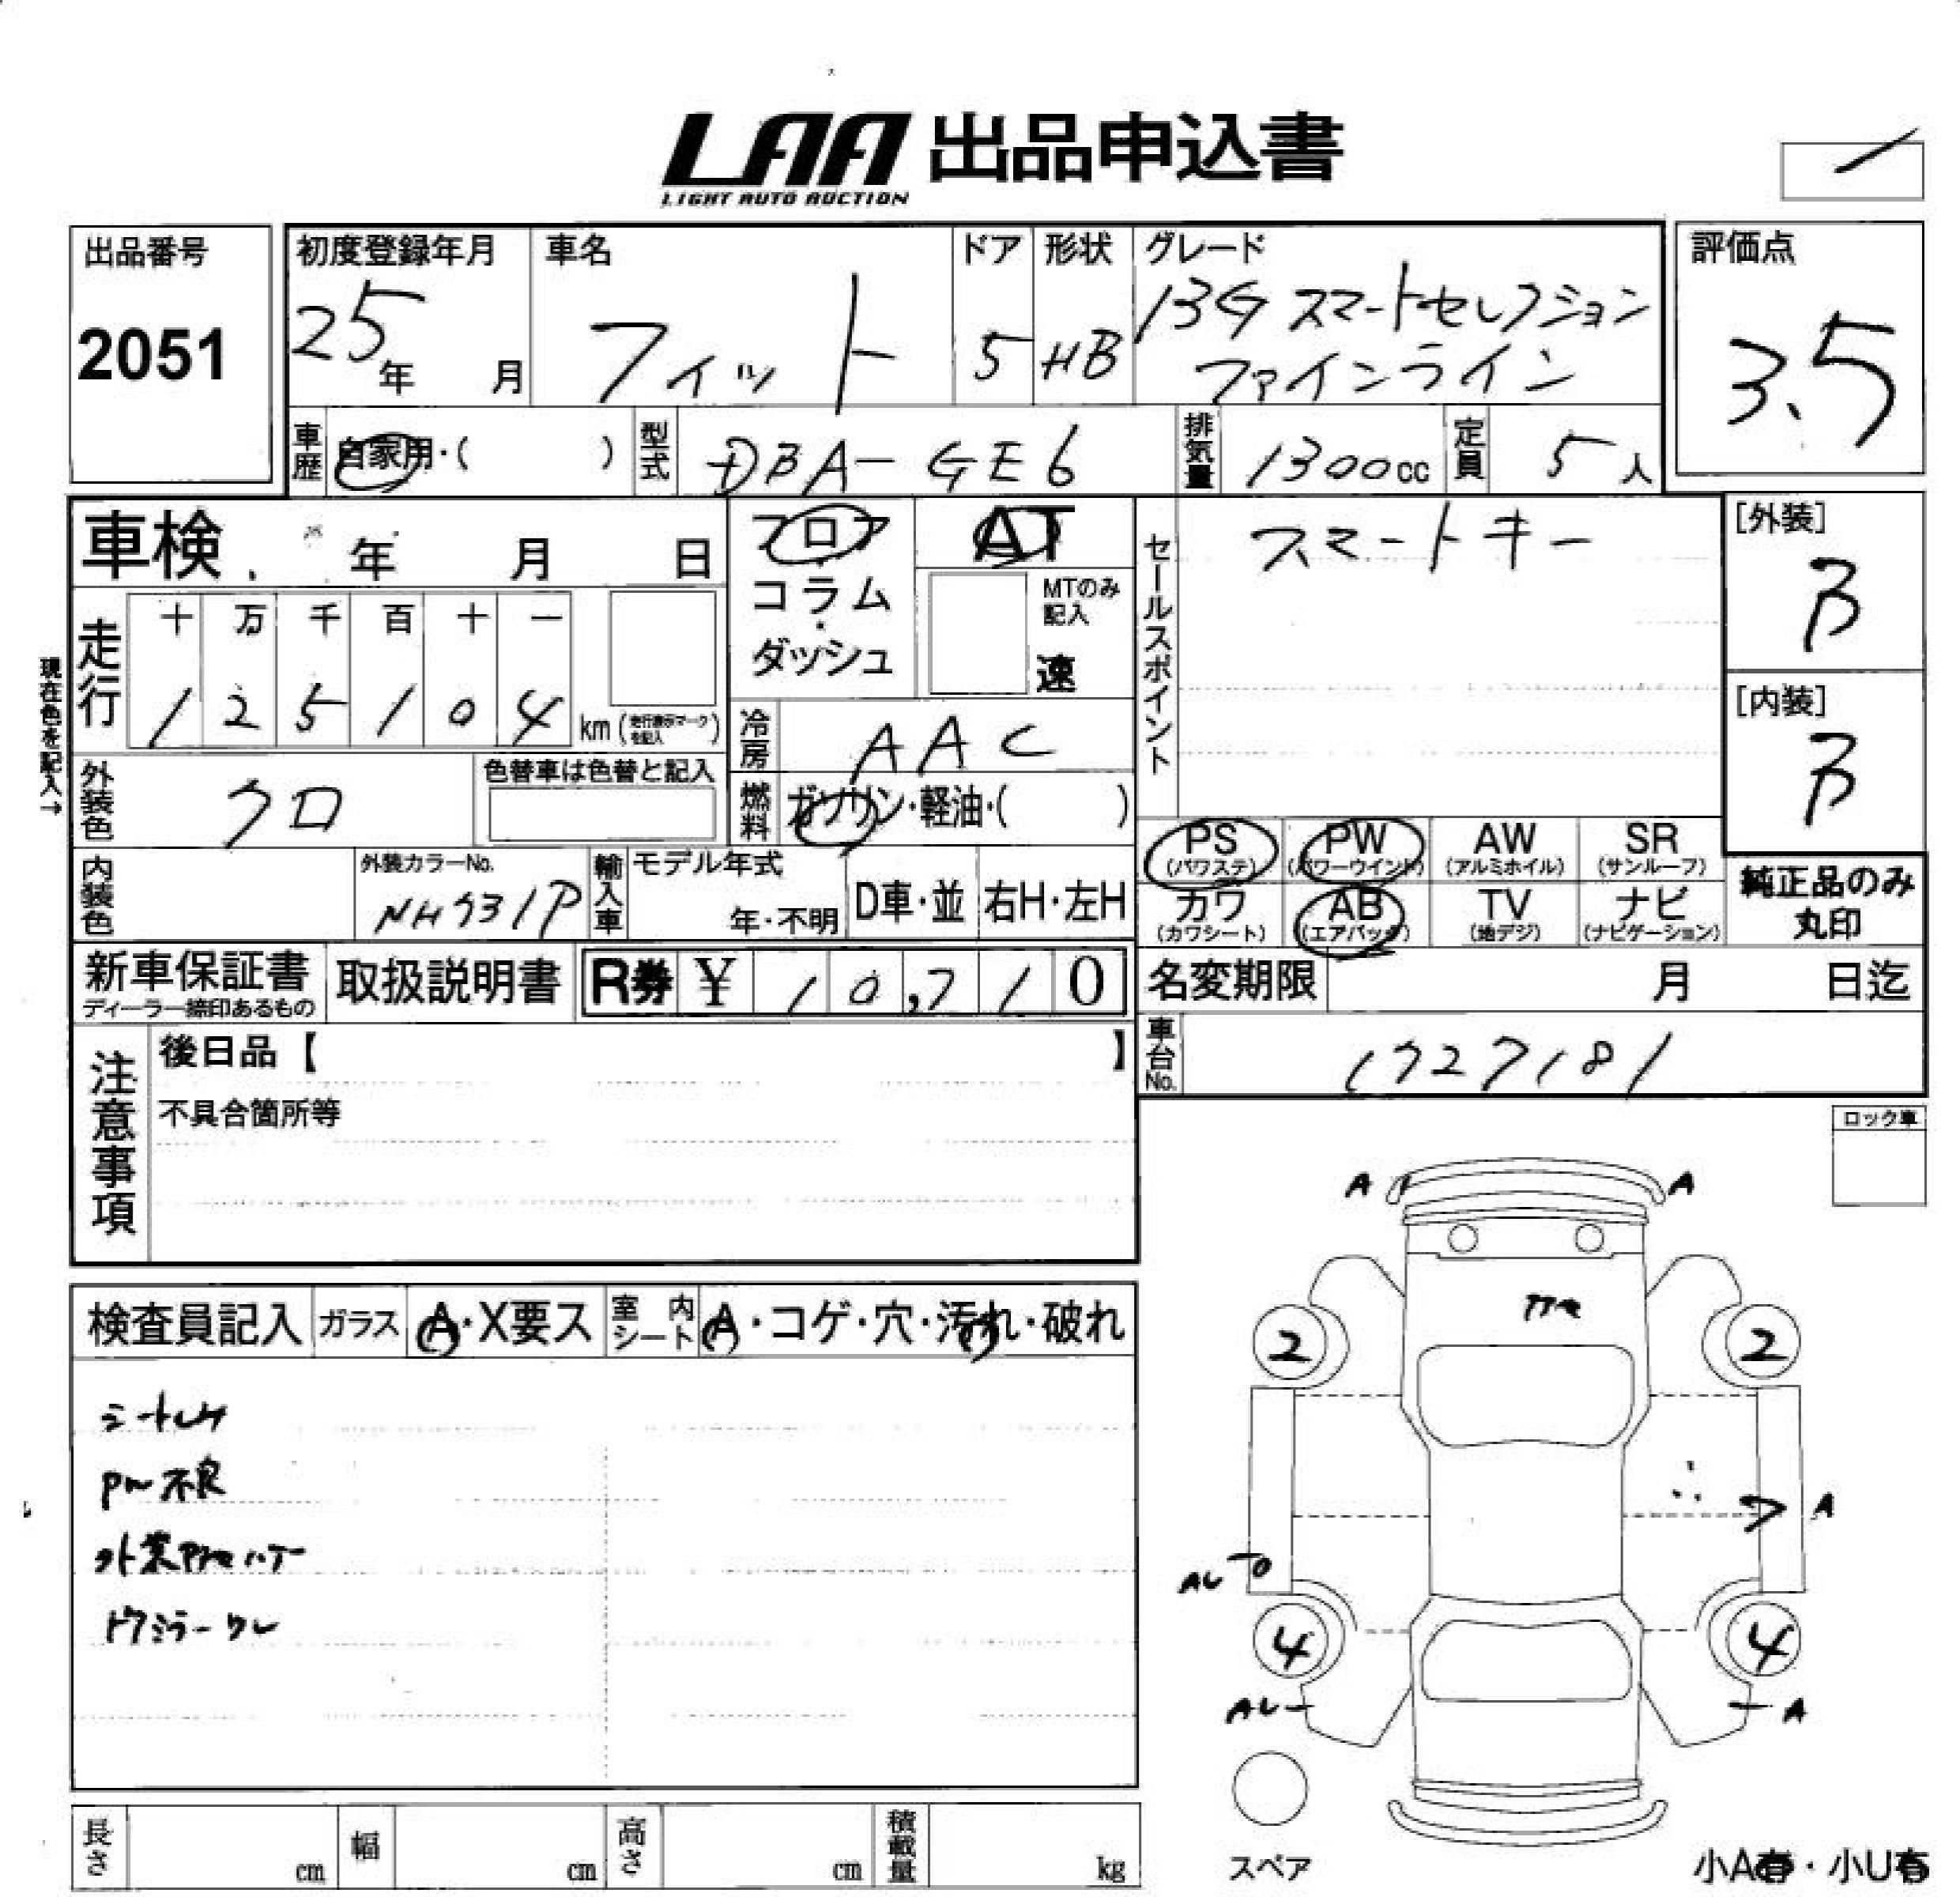 LAA 出品申込書
LIGHT AUTO AUCTION
出品番号
2051
初度登録年月
25年 月
車名
フィット
ドア
5
形状
HB
グレード
13G スマートセレクション
ファインライン
評価点
3.5
車歴
自家用・( )
型式
DBA-GE6
排気量
1300cc
定員
5人
車検 年 月 日
フロア
コラム
ダッシュ
AT
MTのみ
記入
速
セールスポイント
スマートキー
[外装]
B
[内装]
B
現在色を記入→
走行
十 万 千 百 十 一
1 2 5 1 0 4 km (走行表示マークを記入)
冷房
AAC
外装色
クロ
色替車は色替と記入
燃料
ガソリン・軽油・( )
内装色
外装カラーNo.
NH731P
輸入車
モデル年式
年・不明
D車・並
右H・左H
PS
(パワステ)
PW
(パワーウインド)
AW
(アルミホイル)
SR
(サンルーフ)
カワ
(カワシート)
AB
(エアバック)
TV
(地デジ)
ナビ
(ナビゲーション)
純正品のみ
丸印
新車保証書
ディーラー締印あるもの
取扱説明書
R券 ¥ 10,710
名変期限 月 日迄
車台No.
1727181
注意事項
後日品【 】
不具合箇所等
ロック車
検査員記入
ガラス
A・X要ス
室内シート
A・コゲ・穴・汚れ・破れ
PW不良
A
A
2
2
A
AU
4
4
AU
A
スペア
長さ cm
幅 cm
高さ cm
積載量 kg
小A有・小U有